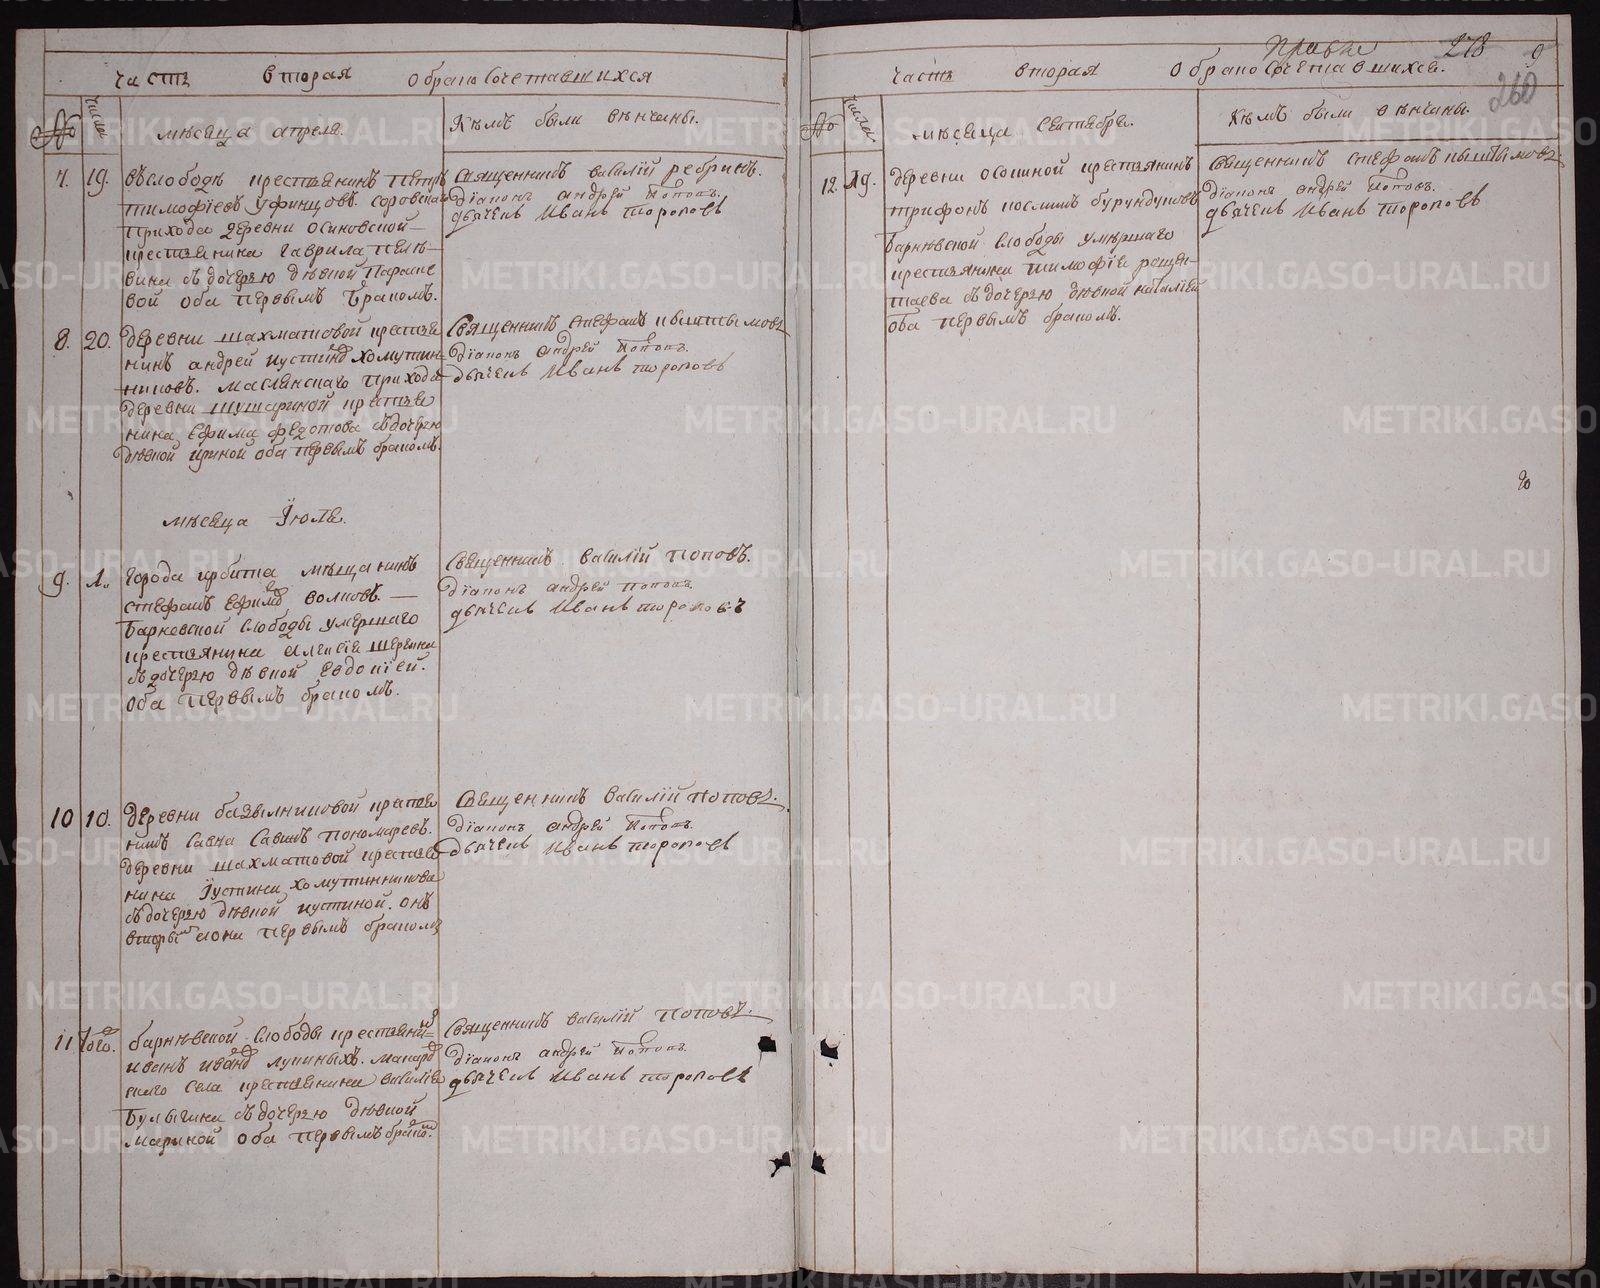 часть вторая о бракосочетавшихся
№ числа мѣсяца апреля. Кѣмъ были вѣнчаны.
7. 19. въ слободѣ крестьянинъ Петръ
тимофѣевъ Уфинцовъ. соровскаго
прихода деревни осиновской
крестьянина гаврила пеле-
вина съ дочерью дѣвкой Параске
вой оба первымъ бракомъ.
священникъ василій ребринъ.
діаконъ андрей поповъ.
дьячекъ Иванъ тороповъ
8. 20. деревни шахматовой крестья
нинъ андрей иустинъ хомутин-
никовъ. маслянскаго прихода
деревни шушариной крестья
нина ефима федотова съ дочерью
дѣвкой ириной оба первымъ бракомъ.
Священникъ стефанъ пыштымовъ
діаконъ андрей поповъ.
дьячекъ Иванъ тороповъ
мѣсяца Іюля.
9. 1. города ирбита мѣщанинъ
стефанъ ефимъ волковъ.
Барневской слободы умершаго
крестьянина алексѣя
съ дочерью дѣвкой евдокіей.
оба первымъ бракомъ.
Священникъ василій поповъ.
діаконъ андрей поповъ.
дьячекъ Иванъ тороповъ
10 10. деревни крестья
нинъ савва савинъ пономаревъ.
деревни шахматовой крестья
нина Іустина хомутинникова
съ дочерью дѣвкой иустиной. онъ
вторымъ а она первымъ бракомъ
Священникъ василій поповъ.
діаконъ андрей поповъ.
дьячекъ Иванъ тороповъ
11 того. барнѣвской слободы крестьянинъ
иванъ лукиныхъ.
скаго села крестьянина василія
Булыгина съ дочерью дѣвкой
мариной оба первымъ бракомъ.
Священникъ василій поповъ.
діаконъ андрей поповъ.
дьячекъ Иванъ тороповъ
278 9
260
часть вторая о бракосочетавшихся.
№ числа мѣсяца сентября. Кѣмъ были вѣнчаны.
12. 19. деревни осокиной крестьянинъ
трифонъ бурундуковъ
Барнѣвской слободы умершаго
крестьянина тимофѣя
съ дочерью дѣвкой наталіей
оба первымъ бракомъ.
Священникъ стефанъ пыштымовъ
діаконъ андрей поповъ.
дьячекъ Иванъ тороповъ
METRIKI.GASO-URAL.RU